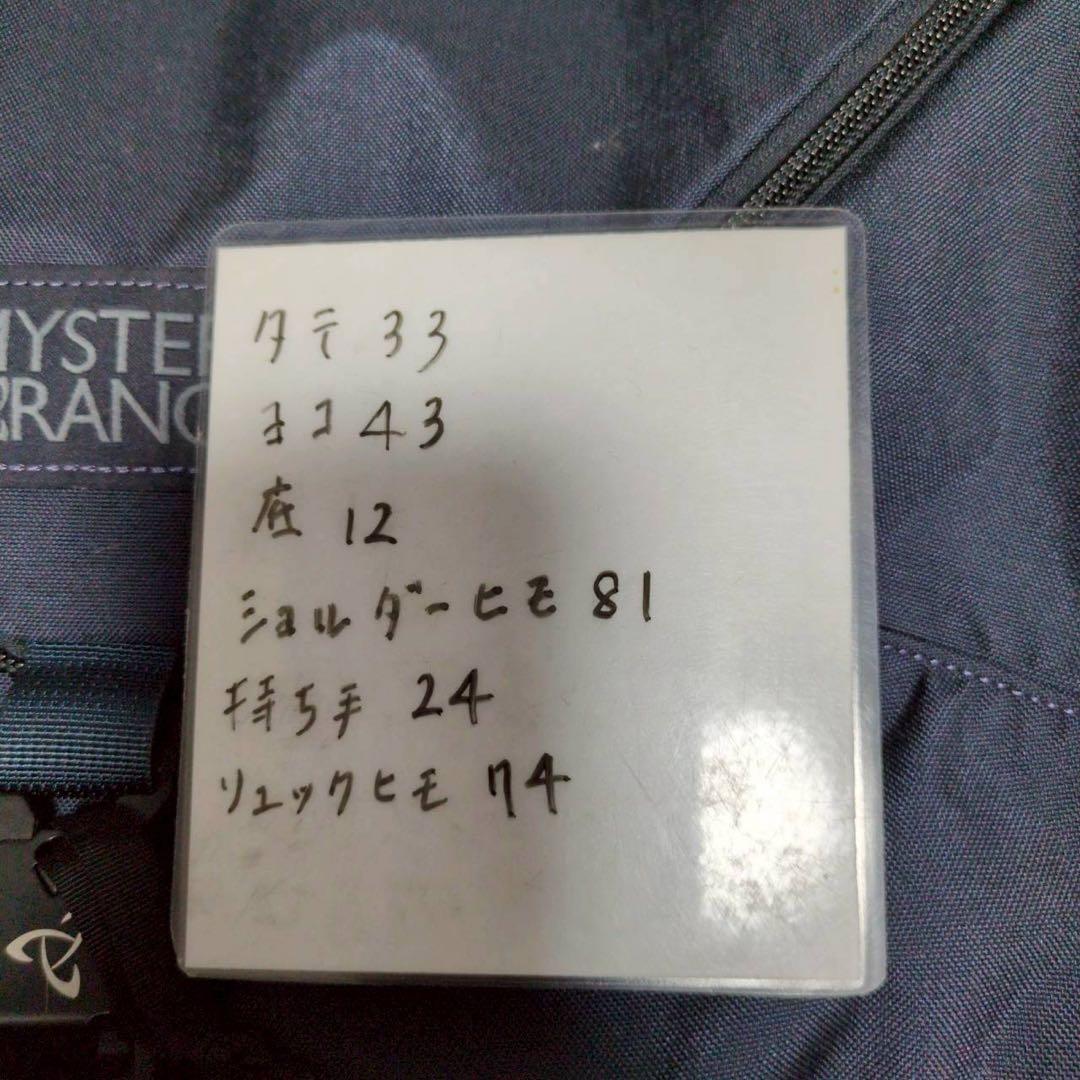 タテ 33
ヨコ 43
底 12
ショルダーヒモ 81
持ち手 24
リュックヒモ 74
MYSTE
RANC